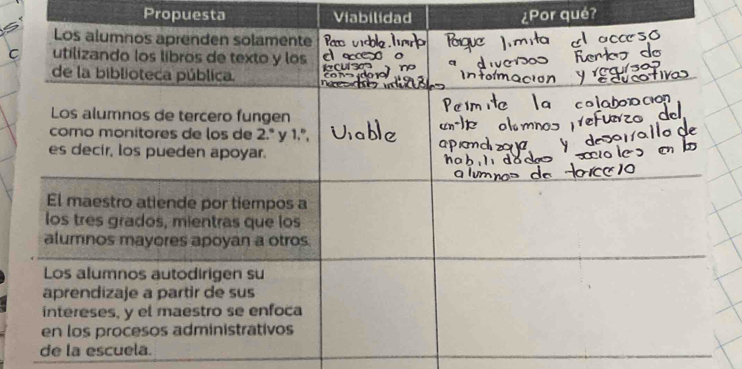 Propuesta Viabilidad ¿Por qué?
Los alumnos aprenden solamente
utilizando los libros de texto y los
de la biblioteca pública.
Poco viable. limita
el acceso a
recursos
no
Porque limita el acceso
a diversos fuentes de
informacion y recursos
educativos
Los alumnos de tercero fungen
como monitores de los de 2.° y 1.°,
es decir, los pueden apoyar.
Viable
Permite la colaboracion
entre alumnos, refuerzo del
aprendizaje y desarrallo de
habilidades sociales en los
alumnos de tercero
El maestro atiende por tiempos a
los tres grados, mientras que los
alumnos mayores apoyan a otros.
Los alumnos autodirigen su
aprendizaje a partir de sus
intereses, y el maestro se enfoca
en los procesos administrativos
de la escuela.